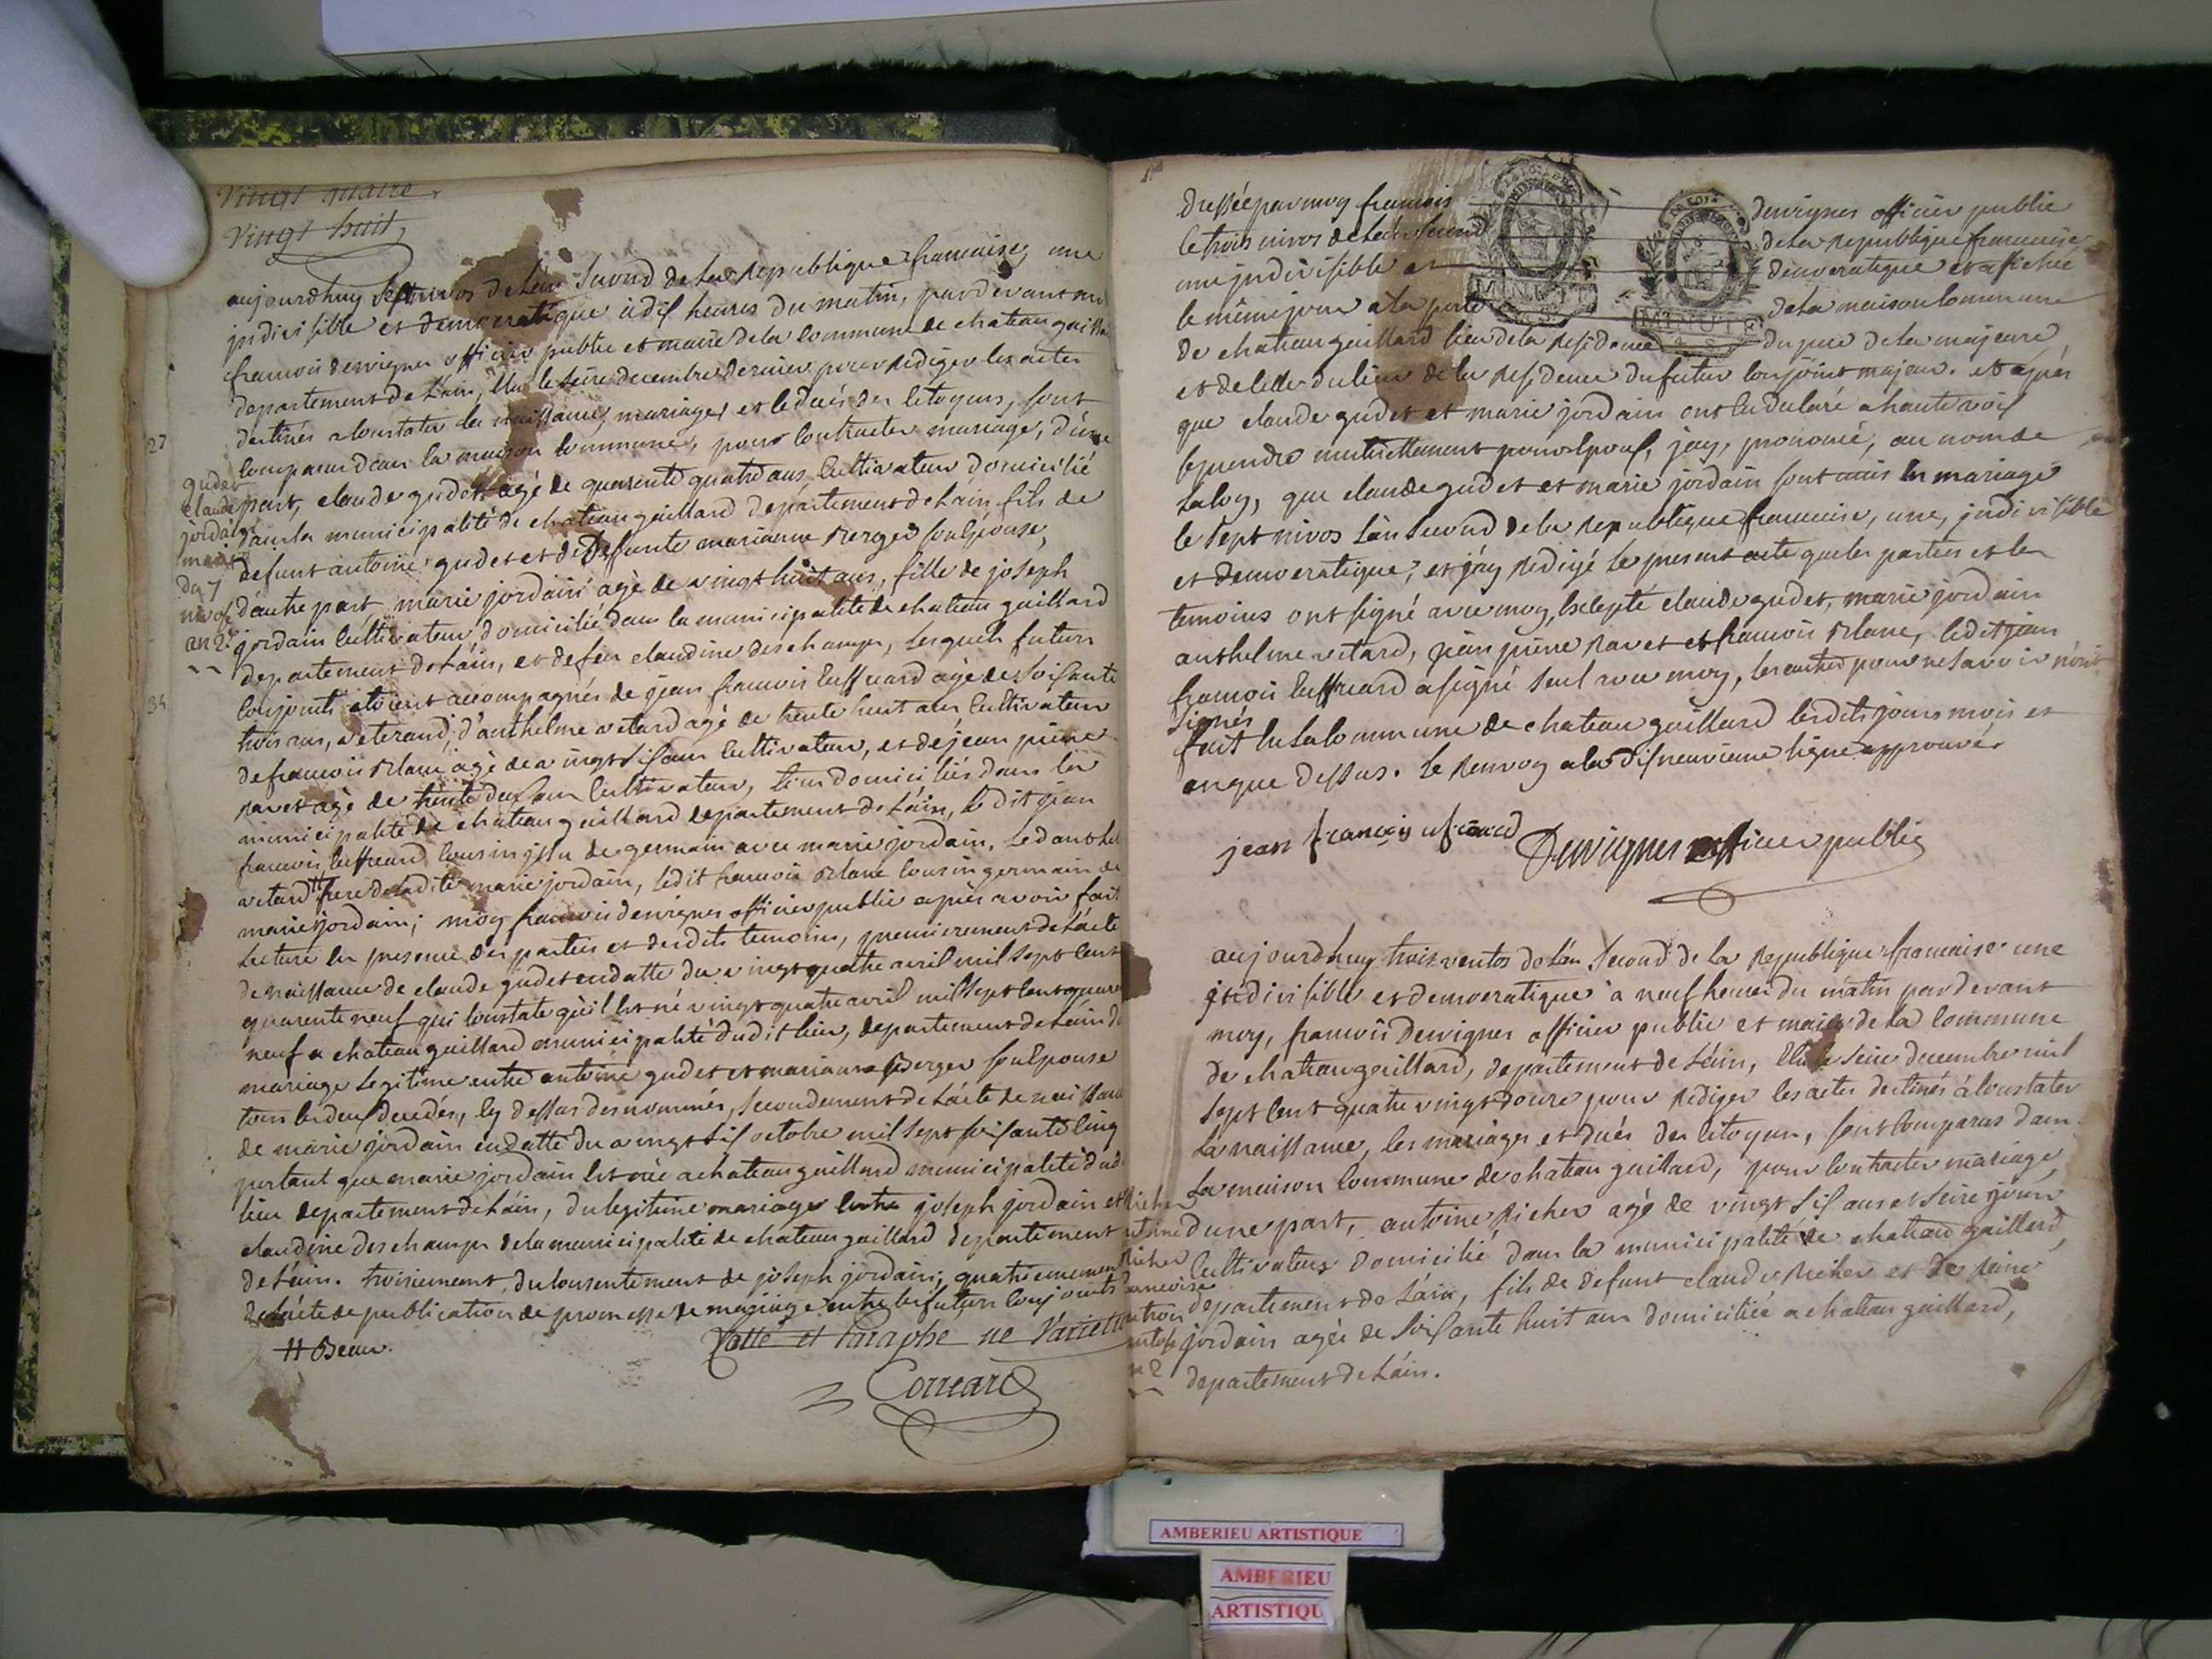 Vingt quatre
Vingt huit
aujourdhuy Sept nivos de Lan Second de la Republique francaise, une
jndivisible et democratique à dix heures du matin, pardevant moi
francois dervignes officier public et maire de la commune de chateau gaillard
departement de Lain, Elu le seize decembre dernier pour rediger les actes
destinés a constater les naissances, mariages et le décès des Citoyens, sont
27
comparus dans la maison commune, pour contracter mariage, d'une
gudet
claude
jordain
marie
du 7
nivose
an 2e
part, claude gudet agé de quarente quatre ans, cultivateur domicilié
dans la municipalité de chateau gaillard departement de Lain, fils de
defunt antoine gudet et de deffunte marianne Berger son Epouse,
d'autre part marie jordain agée de vingt huit ans, fille de joseph
jordain cultivateur domicilié dans la municipalité de chateau gaillard
departement de Lain, et de feu claudine deschamps, Lesquels futurs
34
conjoints etoient accompagnés de jean francois agé de soisante
trois ans, veterand, d'anthelme vetard agé de trente huit ans cultivateur
de francois Blanc agé de vingt six ans cultivateur, et de jean pierre
ravet agé de trente deux ans cultivateur, tous domiciliés dans la
municipalité de chateau gaillard departement de Lain, le dit jean
francois cousin jssu de germain avec marie jordain, Led anthelme
vetard # frere de ladite marie jordain, ledit francois Blanc cousin germain de
marie jordain; moy francois dervignes officier public après avoir fait
Lecture en presence des parties et desdits temoins, premierement de Lacte
de naissance de claude gudet en datte du vingt quatre avril mil sept cent
quarente neuf qui constate qu'il est né vingt quatre avril mil sept cent quarente
neuf a chateau gaillard municipalité dudit lieu, departement de Lain du
mariage legitime entre antoine gudet et marianne Berger son Epouse
tous les deux decedés, cy dessus desnommés, secondement de Lacte de naissance
de marie jordain en datte du vingt six octobre mil sept soisante cinq
portant que marie jordain est née a chateau gaillard municipalité dud
lieu departement de Lain, du legitime mariage entre joseph jordain et
claudine deschamps de la municipalité de chateau gaillard departement
de Lain. troisiemement du consentement de joseph jordain; quatriemement
de lacte de publication de promesse de mariage entre les futurs conjoints
# Beau
Cotté et Paraphé ne Varietur
dressée par moy francois dervignes officier public
le trois nivos de Lan second de la Republique francaise
une jndivisible et democratique et afichée
le même jour a la porte de la maison commune
de chateau gaillard lieu de la residence du pere de la majeure
et de celle du lieu de la residence du futur conjoint majeur. et après
que claude gudet et marie jordain ont eu declaré a haute voix
se prendre mutuellement pour Epoux, jay, prononcé, au nom de
La loy, que claude gudet et marie jordain sont unis en mariage
le sept nivos Lan second de la Republique francaise, une, jndivisible
et democratique, et jay redigé le present acte que les parties et les
temoins ont signé avec moy, Excepté claude gudet, marie jordain
anthelme vetard, jean pierre ravet et francois Blanc, ledit jean
francois a signé seul avec moy, les autres pour ne savoir n'ont
signés
fait En la commune de chateau gaillard lesdits jours mois et
an que dessus. le renvoy a la dix neuvieme ligne approuvé
jean françois
Dervignes officier public
aujourdhuy trois ventos de Lan Second de la Republique francaise une
jndivisible et democratique a neuf heures du matin pardevant
moy, francois Dervignes officier public et maire de la commune
de chateau gaillard, departement de Lain, Elu le seize decembre mil
sept cent quatre vingt douze pour rediger les actes destinés à constater
La naissance, les mariages et decés des Citoyens, sont comparus dans
La maison commune de chateau gaillard, pour contracter mariage,
Richer
antoine
Richer
francoise
trois
ventose
an 2
d'une part, antoine Richer agé de vingt six ans et seize jours
cultivateur domicilié dans la municipalité de chateau gaillard,
departement de Lain, fils de defunt claude Richer et de
jordain agée de soisante huit ans domiciliée a chateau gaillard,
departement de Lain.
MINUTE
MINUTE
AMBERIEU ARTISTIQUE
AMBERIEU
ARTISTIQU